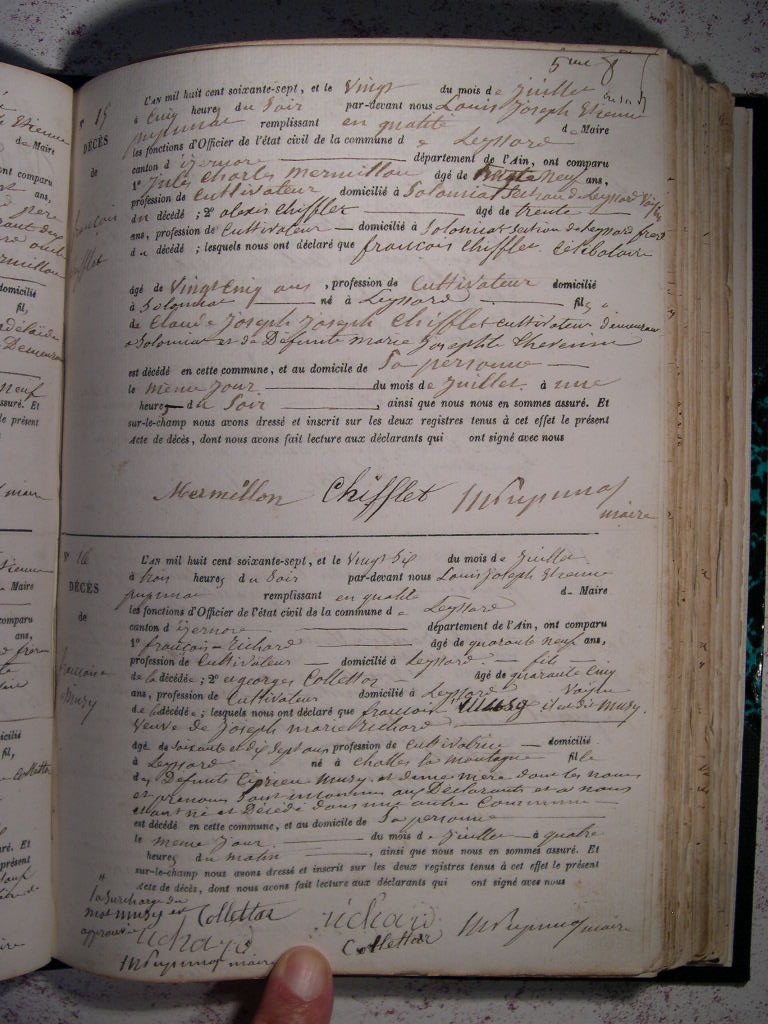 5me 8
N° 15
DÉCÈS
de
françois
Chifflet
L'AN mil huit cent soixante-sept, et le Vingt du mois de juillet
à Cinq heures du Soir par-devant nous Louis Joseph Etienne
remplissant en qualité de Maire
les fonctions d'Officier de l'état civil de la commune de Leyssard
canton d'izernore département de l'Ain, ont comparu
1° Jules Charles Mermillon âgé de neuf ans,
profession de Cultivateur domicilié à Solomiat Section de Leyssard Voisin
du décédé ; 2° alexis Chifflet âgé de trente
ans, profession de Cultivateur domicilié à Solomiat Section de Leyssard frere
du décédé ; lesquels nous ont déclaré que francois Chifflet. Célibataire
âgé de Vingt Cinq ans, profession de Cultivateur domicilié
à Solomiat né à Leyssard fils
de Claude Joseph Joseph Chifflet cultivateur demeurant
a Solomiat et de Défunte marie Josephte thevenin
est décédé en cette commune, et au domicile de Sa personne
le meme Jour du mois de Juillet. à une
heure du Soir, ainsi que nous nous en sommes assuré. Et
sur-le-champ nous avons dressé et inscrit sur les deux registres tenus à cet effet le présent
Acte de décès, dont nous avons fait lecture aux déclarants qui ont signé avec nous
Mermillon Chifflet
maire
N° 16
DÉCÈS
de
francoise
Musy
L'AN mil huit cent soixante-sept, et le Vingt Six du mois de Juillet
à trois heures du Soir par-devant nous Louis Joseph Etienne
remplissant en qualité de Maire
les fonctions d'Officier de l'état civil de la commune de Leyssard
canton d'izernore département de l'Ain, ont comparu
1° françois Richard âgé de quarante neuf ans,
profession de Cultivateur domicilié à Leyssard fils
de la décédée ; 2° georges Collettaz âgé de quarante Cinq
ans, profession de Cultivateur domicilié à Leyssard Voisin
de la décédée ; lesquels nous ont déclaré que francoise Musy
Veuve de Joseph marie Richard
âgé de Soixante et dix Sept ans profession de Cultivatrice domicilié
à Leyssard né à Challes la montagne fille
des Défunts Ciprien Musy et d'une mère dont les noms
et prenoms Sont inconnus aux Déclarants et a nous
etant né et Décédé dans une autre Commune
est décédé en cette commune, et au domicile de Sa personne
le meme Jour du mois de Juillet à quatre
heures du matin, ainsi que nous nous en sommes assuré. Et
sur-le-champ nous avons dressé et inscrit sur les deux registres tenus à cet effet le présent
Acte de décès, dont nous avons fait lecture aux déclarants qui ont signé avec nous
la Surcharge du
mot musy est
approuvée
Collettaz
richard
richard
Collettaz
maire
maire